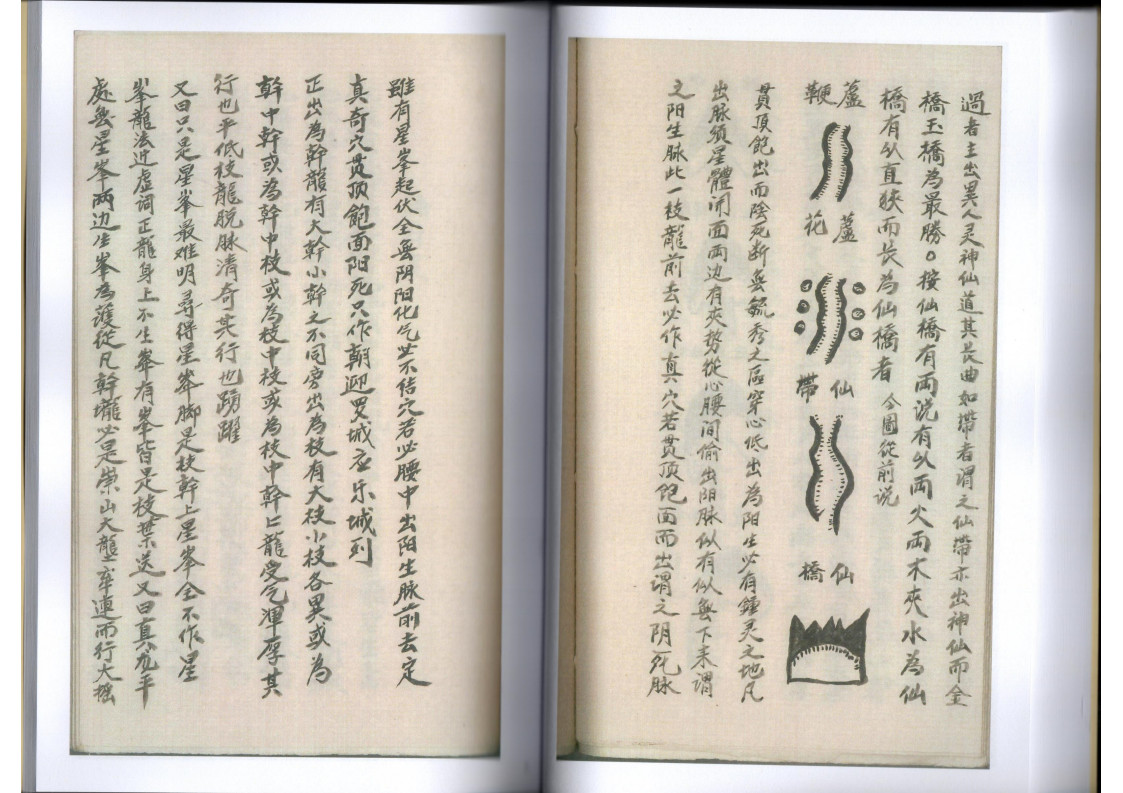 過者主出異人灵神仙道其長曲如帶者謂之仙帶亦出神仙而金
橋玉橋為最勝○按仙橋有両説有以両火両木夾水為仙
橋有以直狹而长為仙橋者 今圖從前说
蘆鞭
蘆花
仙帶
仙橋
貫頂飽出而陰死断無毓秀之區穿心低出為阳生必有鍾灵之地凡
出脉须星體開面両边有夾势從心腰间偷出阳脉似有似無下来謂
之阳生脉此一枝龍前去必作真穴若贯顶飽面而出謂之阴死脉
雖有星峯起伏全無阴阳化气必不结穴若必腰中出阳生脉前去定
真奇穴贯顶飽面阳死只作朝迎罗城应乐城列
正出為幹龍有大幹小幹之不同旁出為枝有大枝小枝各異或為
幹中幹或為幹中枝或為枝中枝或為枝中幹上龍受气渾厚其
行也平低枝龍脱脉清奇其行也踴躍
又曰只是星峯最难明尋得星峯脚是枝幹上星峯全不作星
峯龍法近虚词正龍身上不生峯有峯皆是枝葉送又曰真龙平
處無星峯両边生峯為護從凡幹壠必是崇山大壟牽連而行大